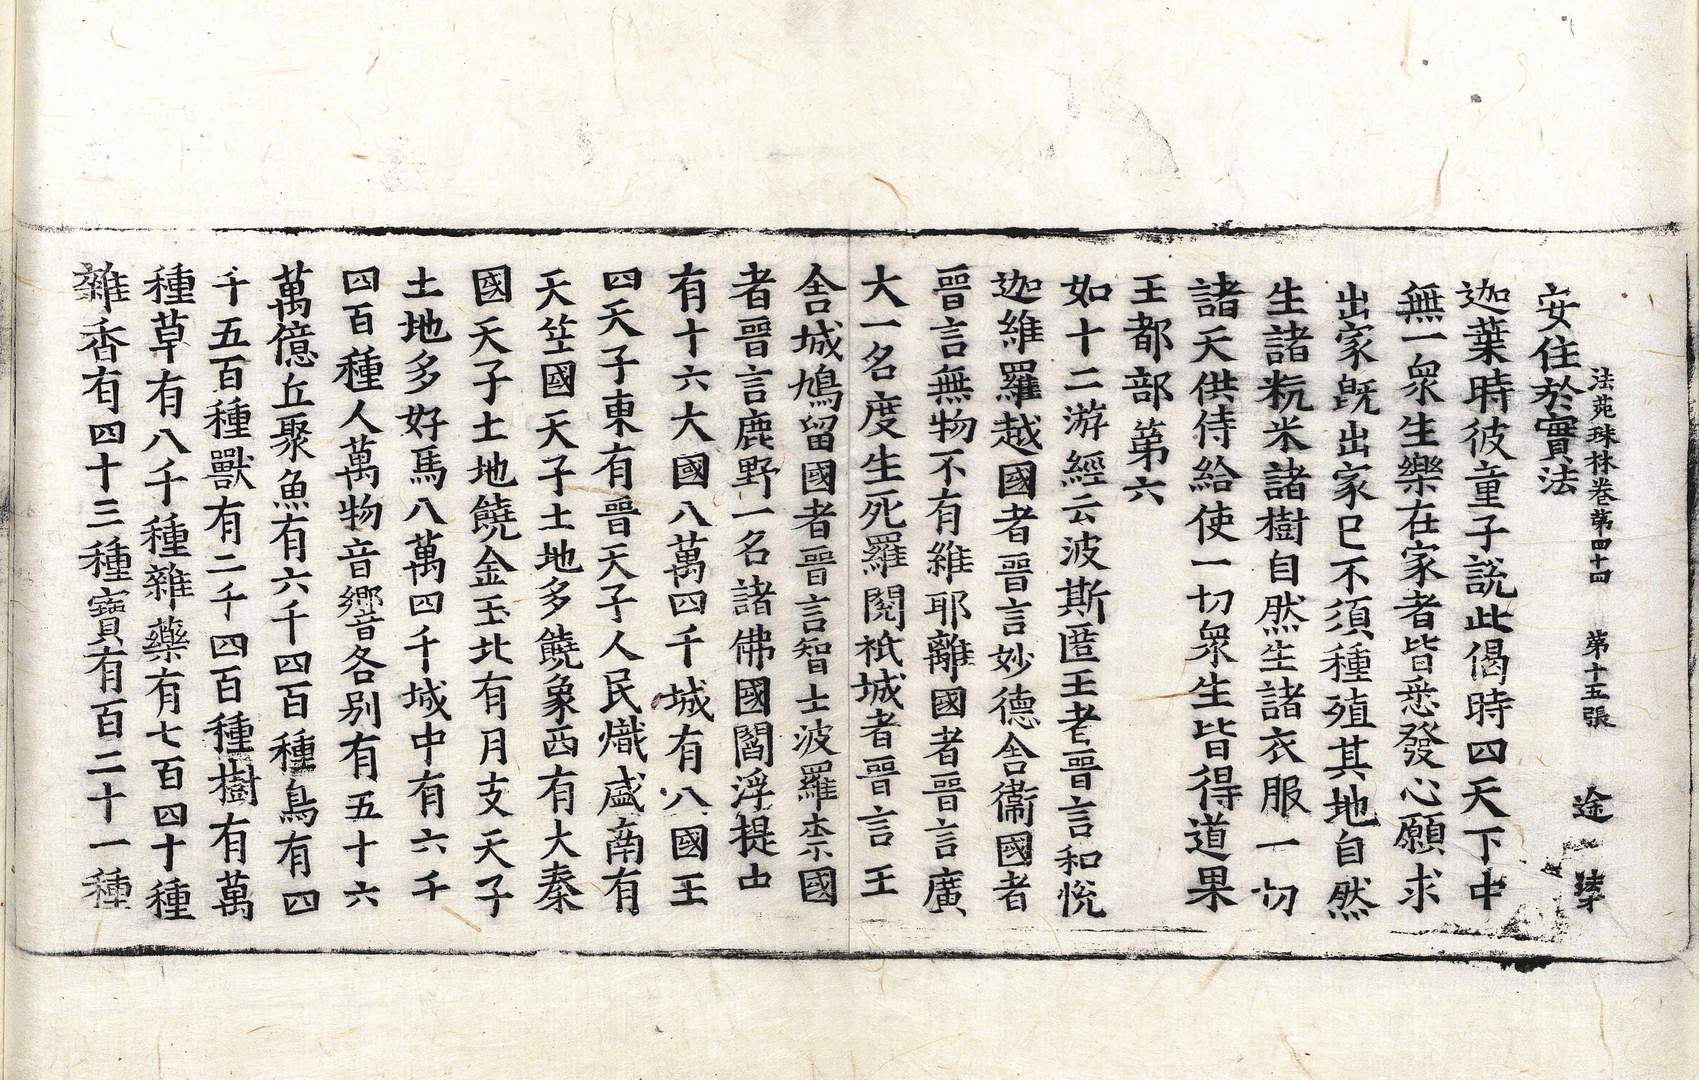 法苑珠林卷第四十四 第十五張 途
安住於實法
迦葉時彼童子說此偈時四天下中
無一眾生樂在家者皆悉發心願求
出家旣出家已不須種殖其地自然
生諸粇米諸樹自然生諸衣服一切
諸天供侍給使一切眾生皆得道果
王都部第六
如十二游經云波斯匿王者晉言和悅
迦維羅越國者晉言妙德舍衞國者
晉言無物不有維耶離國者晉言廣
大一名度生死羅閱祇城者晉言王
舍城鳩留國者晉言智士波羅柰國
者晉言鹿野一名諸佛國閻浮提中
有十六大國八萬四千城有八國王
四天子東有晉天子人民熾盛南有
天竺國天子土地多饒象西有大秦
國天子土地饒金玉北有月支天子
土地多好馬八萬四千城中有六千
四百種人萬物音響各別有五十六
萬億丘聚魚有六千四百種鳥有四
千五百種獸有二千四百種樹有萬
種草有八千種雜藥有七百四十種
雜香有四十三種寶有百二十一種